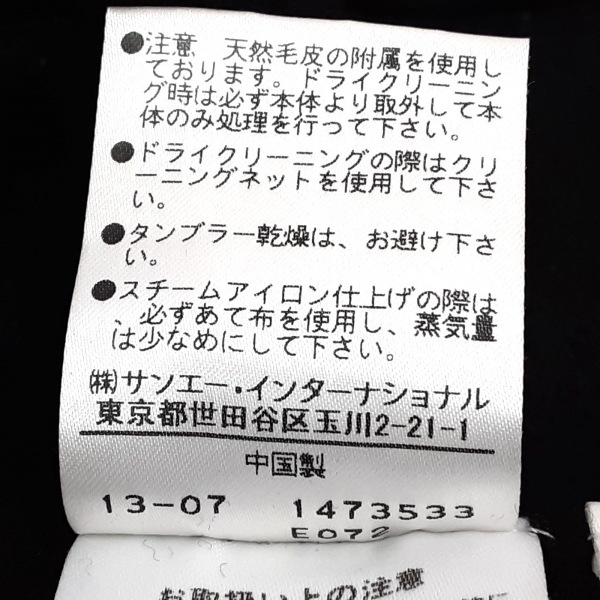 ●注意 天然毛皮の附属を使用し
ております。ドライクリーニン
グ時は必ず本体より取外して本
体のみ処理を行って下さい。
●ドライクリーニングの際はクリ
ーニングネットを使用して下さ
い。
●タンブラー乾燥は、お避け下さ
い。
●スチームアイロン仕上げの際は
、必ずあて布を使用し、蒸気量
は少なめにして下さい。
㈱サンエー・インターナショナル
東京都世田谷区玉川2-21-1
中国製
13-07 1473533
E072
お取扱い上の注意